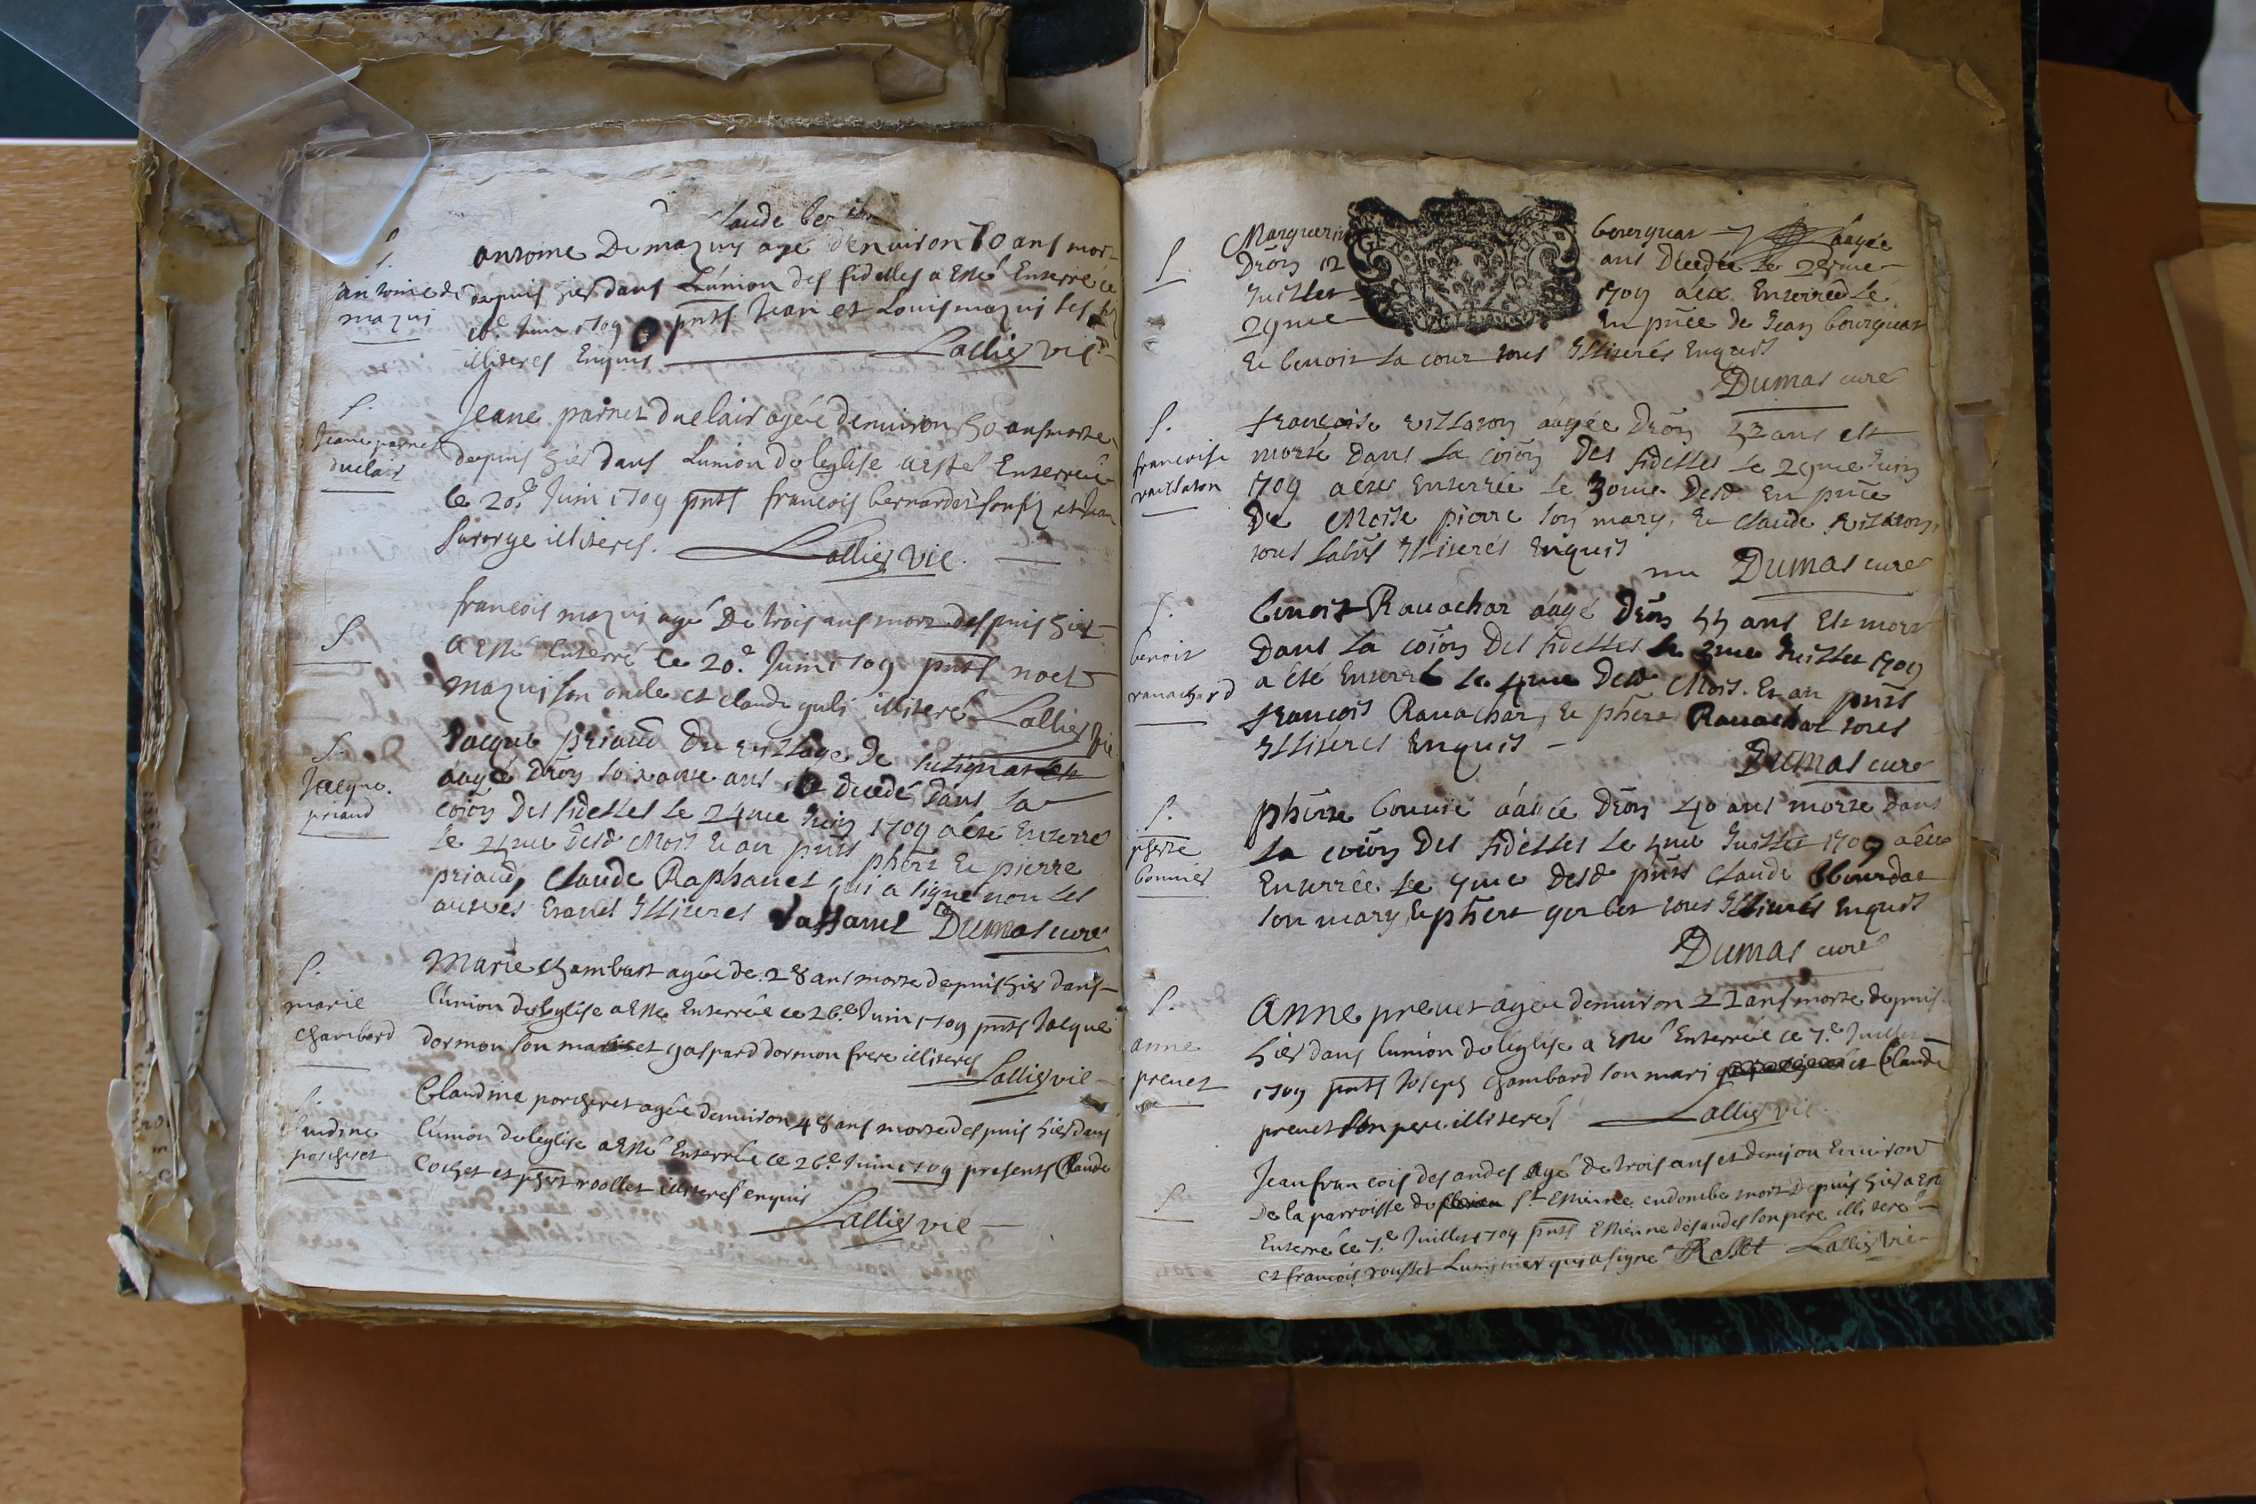 S.
antoine de
mazuis
antoine Demazuis agé denuiron 70 ans mort
depuis hier dans L'union des fidelles a esté Enterré ce
Juin 1709 pnts Jean et Louis mazuis ses
illiteres Enquis Lallier vic.
S.
Jeane parnet
duclair
Jeane parnet duclair agée denuiron 50 ans morte
depuis hier dans Lunion de leglise a esté Enterrée
le 20.e Juin 1709 pnts francois bernardet son fils et Jean
illiteres. Lallier vic.
S.
francois mazuis agé De trois ans mort despuis hier
a esté enterré ce 20.e Juin 1709 pnts noel
mazuis son oncle et claude illiteres Lallier vic.
S.
Jacque.
priaud
Jacque priaud Du village de
aagé Dron soixante ans decedé Dans la
coion Des fidelles le 24me Juin 1709 a esté Enterré
le Desd Mois et an pnts phert et pierre
priaud, Claude Raphanel qui a signé non les
autres Enquis Illiteres Dumas curé
S.
marie
chambard
Marie chambart agée de 28 ans morte depuis hier dans
l'union de leglise a esté Enterrée ce 26.e Juin 1709 pnts Jacque
dormon son mari et gaspard dormon frere illiteres
Lallier vic
S.
audine
porcheret
Claudine porcheret agée denuiron 48 ans morte despuis hier dans
l'union de leglise a esté Enterrée ce 26.e Juin 1709 presents Claude
cochet et phert roollet illiteres enquis
Lallier vic
S.
bourguat aagée
Dron 12 ans Decedée le
Juillet 1709 a esté Enterrée le
29me En pnce de Jean bourguat
Et benoit la cour tous Illiterés Enquis
Dumas curé
S.
francoise
vaillaton
francoise villaton aagée Dron ans est
morte Dans la coion Des fidelles le 29me Juin
1709 a esté Enterrée le 30me Desd En pnce
De Moise pierre son mary, Et claude
tous Illiterés Enquis
Dumas curé
S.
benoit
rauachard
benoit Rauachar aagé Dron ans Est mort
Dans la coion Des fidelles le 3me Juillet 1709
a été Enterré le 4me Desd Mois. Et an pnts
francois Rauachar, Et phert Rauachar tous
Illiteres Enquis
Dumas curé
S.
pherte
bonnier
pherte bonnié aagée Dron 40 ans morte dans
la coion Des fidelles le Juillet 1709 a été
Enterrée le Desd pnts Claude
son mary, Et phert tous Illiterés Enquis
Dumas curé
S.
anne
preuet
Anne preuet agée denuiron 22 ans morte depuis
hier dans lunion de leglise a esté Enterrée ce 7.e Juillet
1709 pnts Joseph chambard son mari et Claude
preuet son pere illiteres Lallier vic.
S.
Jean francois des andes agé de trois ans et demj ou Enuiron
De la parroisse de St Estienne en dombe mort Depuis hier a esté
Enterré ce 7.e Juillet 1709 pnts Estienne desandes son pere illiteré
et francois rousset Luminier qui a signé Lallier vic